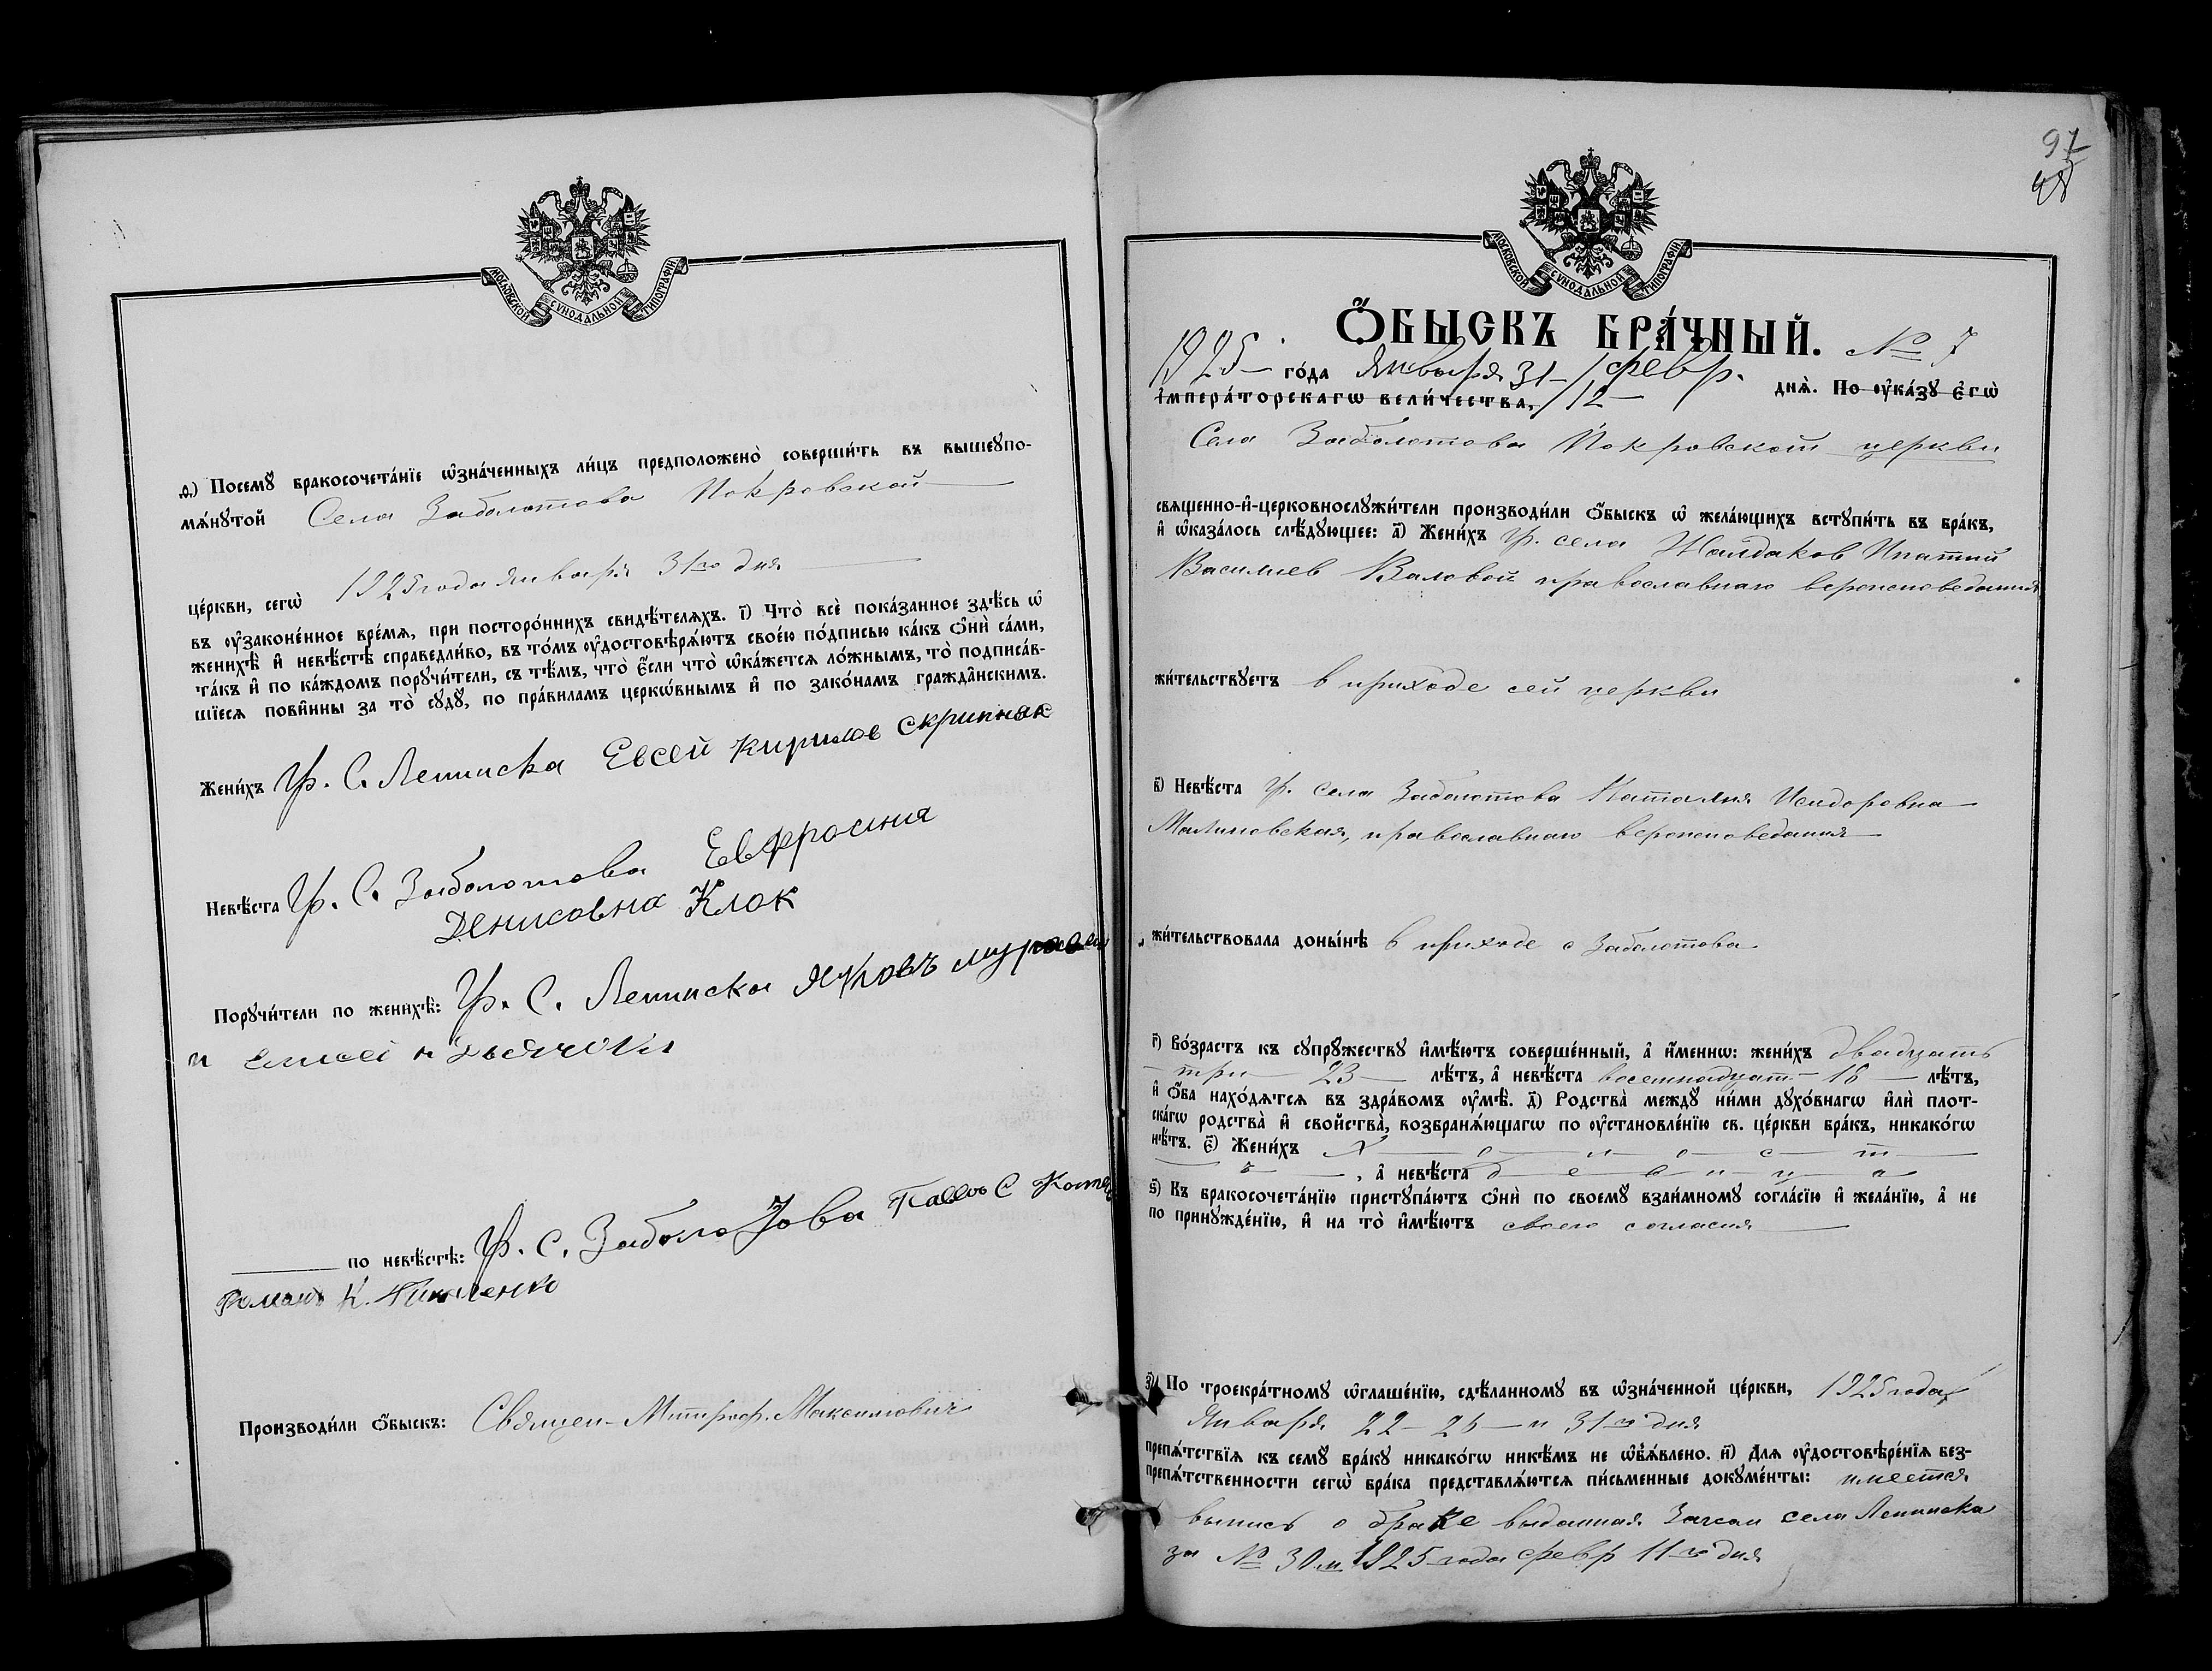 МОСКОВСКОЙ СѴНОДАЛЬНОЙ ТИПОГРАФІИ
ѳ҃.) Посемꙋ̀ бракосочета́нїе ѡ҆зна́ченныхъ ли́цъ предположено̀ соверши́ть въ вышеꙋпо-
мѧ́нꙋтой Села Заболотова Покровской
це́ркви, сегѡ̀ 1925 года Января 31го дня
въ ᲂу҆законе́нное вре́мѧ, при посторо́ннихъ свидѣ́телѧхъ. і҃) Что̀ всѐ пока́занное здѣ́сь ѡ҆
женихѣ̀ и҆ невѣ́стѣ справедли́во, въ то́мъ ᲂу҆достовѣрѧ́ютъ свое́ю по́дписью ка́къ ѻ҆нѝ са́ми,
та́къ и҆ по ка́ждомъ порꙋчи́тели, съ тѣ́мъ, что̀ є҆́сли что̀ ѡ҆ка́жетсѧ ло́жнымъ, то̀ подписа́в-
шїесѧ пови́нны за то̀ сꙋдꙋ̀, по пра́виламъ церкѡ́внымъ и҆ по зако́намъ гражда̂нскимъ.
Жени́хъ Гр. С. Ленинска Евсей Кирилов Скрипник
Невѣ́ста Гр. С. Заболотова Евфросиния
Денисовна Клок
Порꙋчи́тели по женихѣ̀: Гр. С. Ленинска Яковъ
и Елисей
по невѣ́стѣ: Гр. С. Заболотова Павло С
Романъ К.
Производи́ли ѻ҆́быскъ: Священ. Митроф. Максимович
97
48
МОСКОВСКОЙ СѴНОДАЛЬНОЙ ТИПОГРАФІИ
Ѻ҆́БЫСКЪ БРА́ЧНЫЙ. № 7
1925 го́да Января 31 / февр. 12 днѧ̀. По ᲂу҆ка́зꙋ є҆гѡ̀
і҆мпера́торскагѡ вели́чества,
Села Заболотова Покровской церкви
свѧщенно-и҆-церковнослꙋжи́тели производи́ли ѻ҆́быскъ ѡ҆ жела́ющихъ встꙋпи́ть въ бра́къ,
и҆ ѡ҆каза́лось слѣ́дꙋющее: а҃) Жени́хъ Гр. села Жалдаков Ипатий
Василиев Валовой православнаго вероисповедания
жи́тельствꙋетъ в приходе сей церкви
в҃) Невѣ́ста Гр. села Заболотова Наталия Исидоровна
Малиновская, православнаго вероисповедания
жи́тельствовала доны́нѣ в приходе с Заболотова
г҃) Во́зрастъ къ сꙋпрꙋ́жествꙋ и҆мѣ́ютъ соверше́нный, а҆ и҆́меннѡ: жени́хъ двадцать
три 23 лѣ́тъ, а҆ невѣ́ста восемнадцат 18 лѣ́тъ,
и҆ ѻ҆́ба нахо́дѧтсѧ въ здра́вомъ ᲂу҆мѣ̀. д҃) Родства̀ междꙋ̀ ни́ми дꙋхо́внагѡ и҆лѝ плот-
ска́гѡ родства̀ и҆ свойства̀, возбранѧ́ющагѡ по ᲂу҆становле́нїю св. це́ркви бра́къ, никако́гѡ
нѣ́тъ. є҃) Жени́хъ Х о л о с т
, а҆ невѣ́ста д е в и ц а
ѕ҃) Къ бракосочета́нїю пристꙋпа́ютъ ѻ҆нѝ по своемꙋ̀ взаи́мномꙋ согла́сїю и҆ жела́нїю, а҆ не
по принꙋжде́нїю, и҆ на то̀ и҆мѣ́ютъ своего согласия
з҃) По троекра́тномꙋ ѡ҆глаше́нїю, сдѣ́ланномꙋ въ ѡ҆зна́ченной це́ркви, 1925 года
Января 22 - 26 - и 31го дня
препѧ́тствїѧ къ семꙋ̀ бра́кꙋ никако́гѡ никѣ́мъ не ѡ҆б̾ѧ́влено. и҃) Длѧ ᲂу҆достовѣре́нїѧ без-
препѧ́тственности сегѡ̀ бра́ка представлѧ́ютсѧ пи́сьменные докꙋме́нты: имеется
выпись о браке выданная Загсом села Ленинска
за № 30м 1925 года февр 11го дня